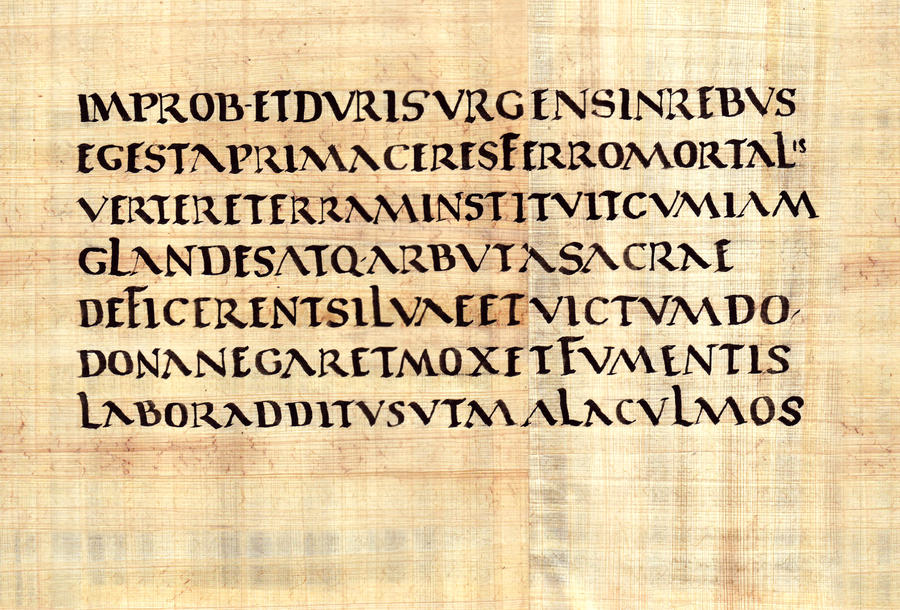 IMPROB·ETDVRISVRGENSINREBVS
EGESTAPRIMACERESFERROMORTALIS
VERTERETERRAMINSTITVITCVMIAM
GLANDESATQ·ARBVTASACRAE
DEFICERENTSILVAEETVICTVMDO
DONANEGARETMOXETFVMENTIS
LABORADDITVSVTMALACVLMOS